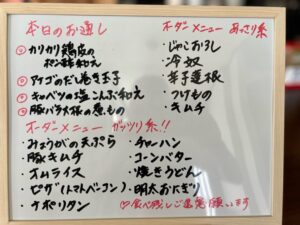 本日のお通し
① カリカリ鶏皮の
ポン酢和え
② アゴのだし巻き玉子
③ キャベツの塩こんぶ和え
④ 豚バラ大根の煮もの
オーダーメニュー あっさり系
・じゃこおろし
・冷奴
・辛子蓮根
・つけもの
・キムチ
オーダーメニュー ガッツリ系!!
・みょうがの天ぷら
・豚キムチ
・オムライス
・ピザ(トマトベーコン)
・ナポリタン
・チャーハン
・コーンバター
・焼きうどん
・明太おにぎり
♡食べ残しご遠慮願います